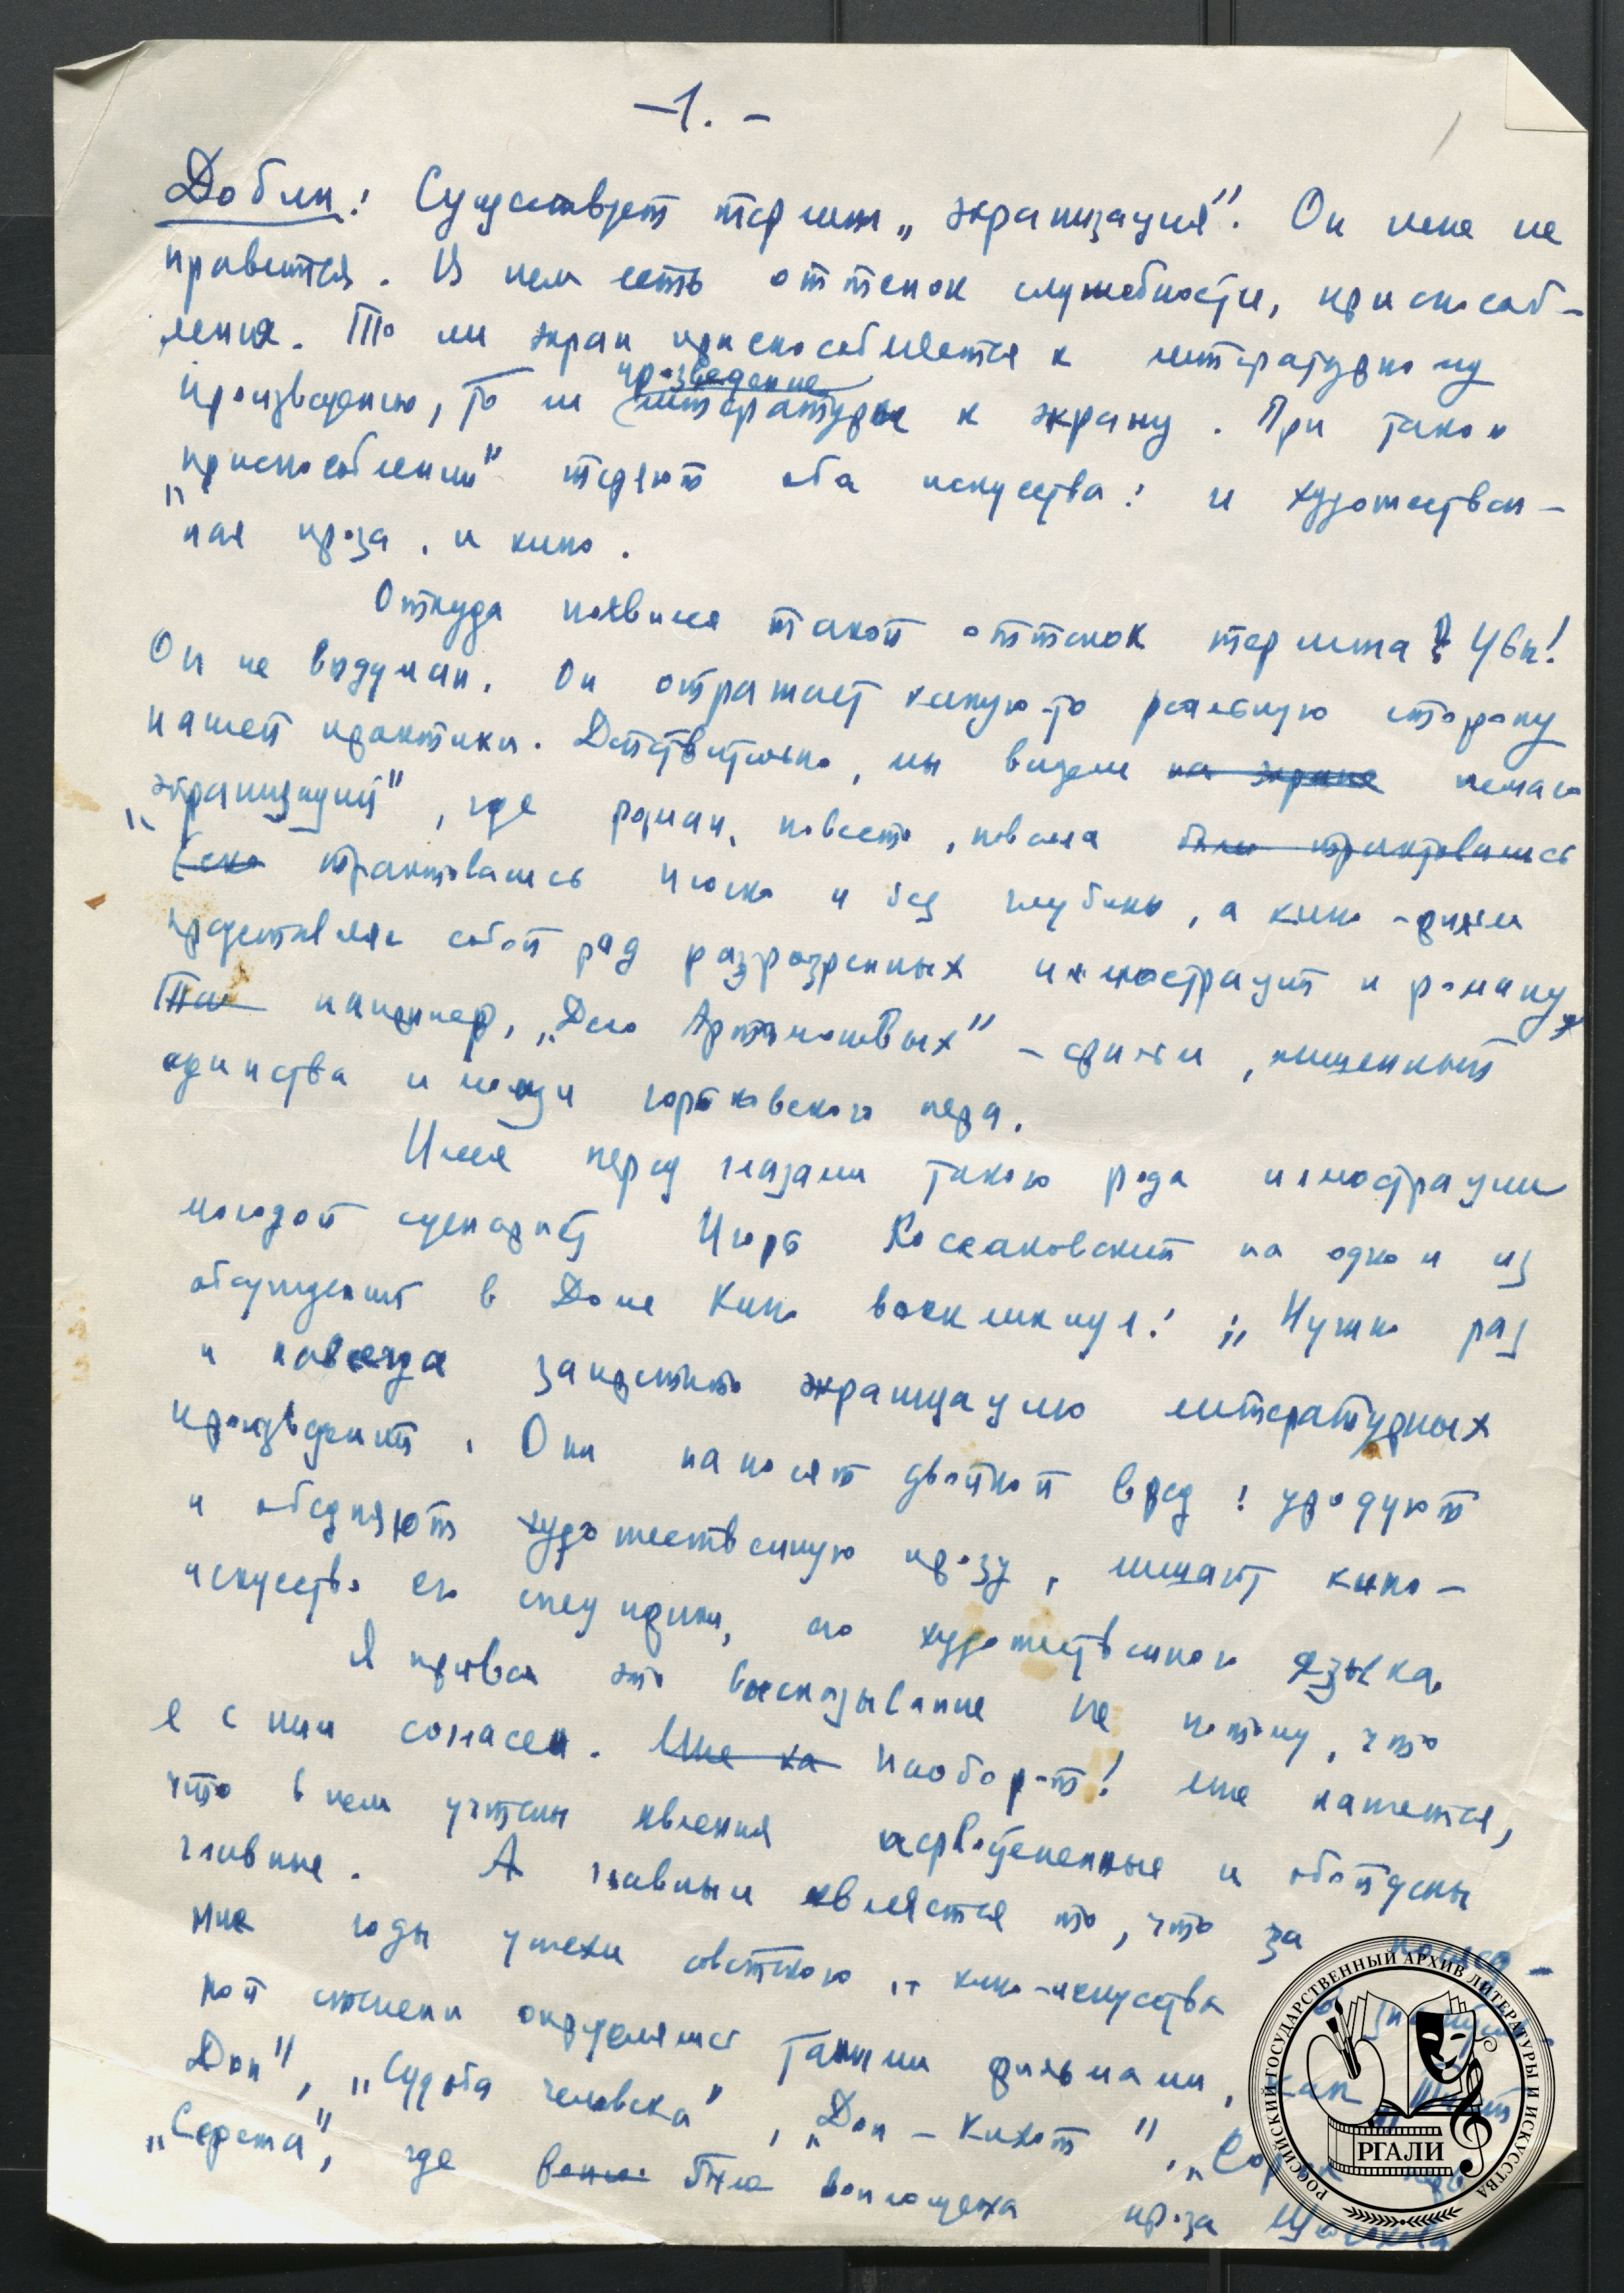 -1.-
Добин: Существует термин „экранизация". Он мне не
нравится. В нем есть оттенок служебности, приспособ-
ления. То ли экран приспособляется к литературному
произведение
произведению, то ли литература к экрану. При таком
„приспособлении" теряют оба искусства: и художествен-
ная проза, и кино.
Откуда появился такой оттенок термина? Увы!
Он не выдуман. Он отражает какую-то реальную сторону
нашей практики. Действительно, мы видели на экране немало
„экранизаций", где роман, повесть, новелла были трактовались
трактовались плоско и без глубины, а кино-фильм
представлял собой ряд разрозненных иллюстраций к роману
Так например, „Дело Артамоновых" – фильм, лишенный
единства и мощи горьковского пера.
Имея перед глазами такого рода иллюстрации
молодой сценарист Игорь Коссаковский на одном из
обсуждений в Доме Кино воскликнул: „Нужно раз
и навсегда запретить экранизацию литературных
произведений. Они наносят двойной вред: уродуют
и обедняют художественную прозу, лишают кино-
искусство его специфики, его художественного языка.
Я привел это высказывание не потому, что
я с ним согласен. Мне ка Наоборот! Мне кажется,
что в нем учтены явления второстепенные и обойдены
главные. А главным является то, что за послед-
ние годы успехи советского кино-искусства в значитель-
ной степени определялись такими фильмами, как „Тихий
Дон", „Судьба человека", „Дон-Кихот", „Сорок первый"
„Сережа", где была воплощена проза Шолохова
РОССИЙСКИЙ ГОСУДАРСТВЕННЫЙ АРХИВ ЛИТЕРАТУРЫ И ИСКУССТВА
РГАЛИ